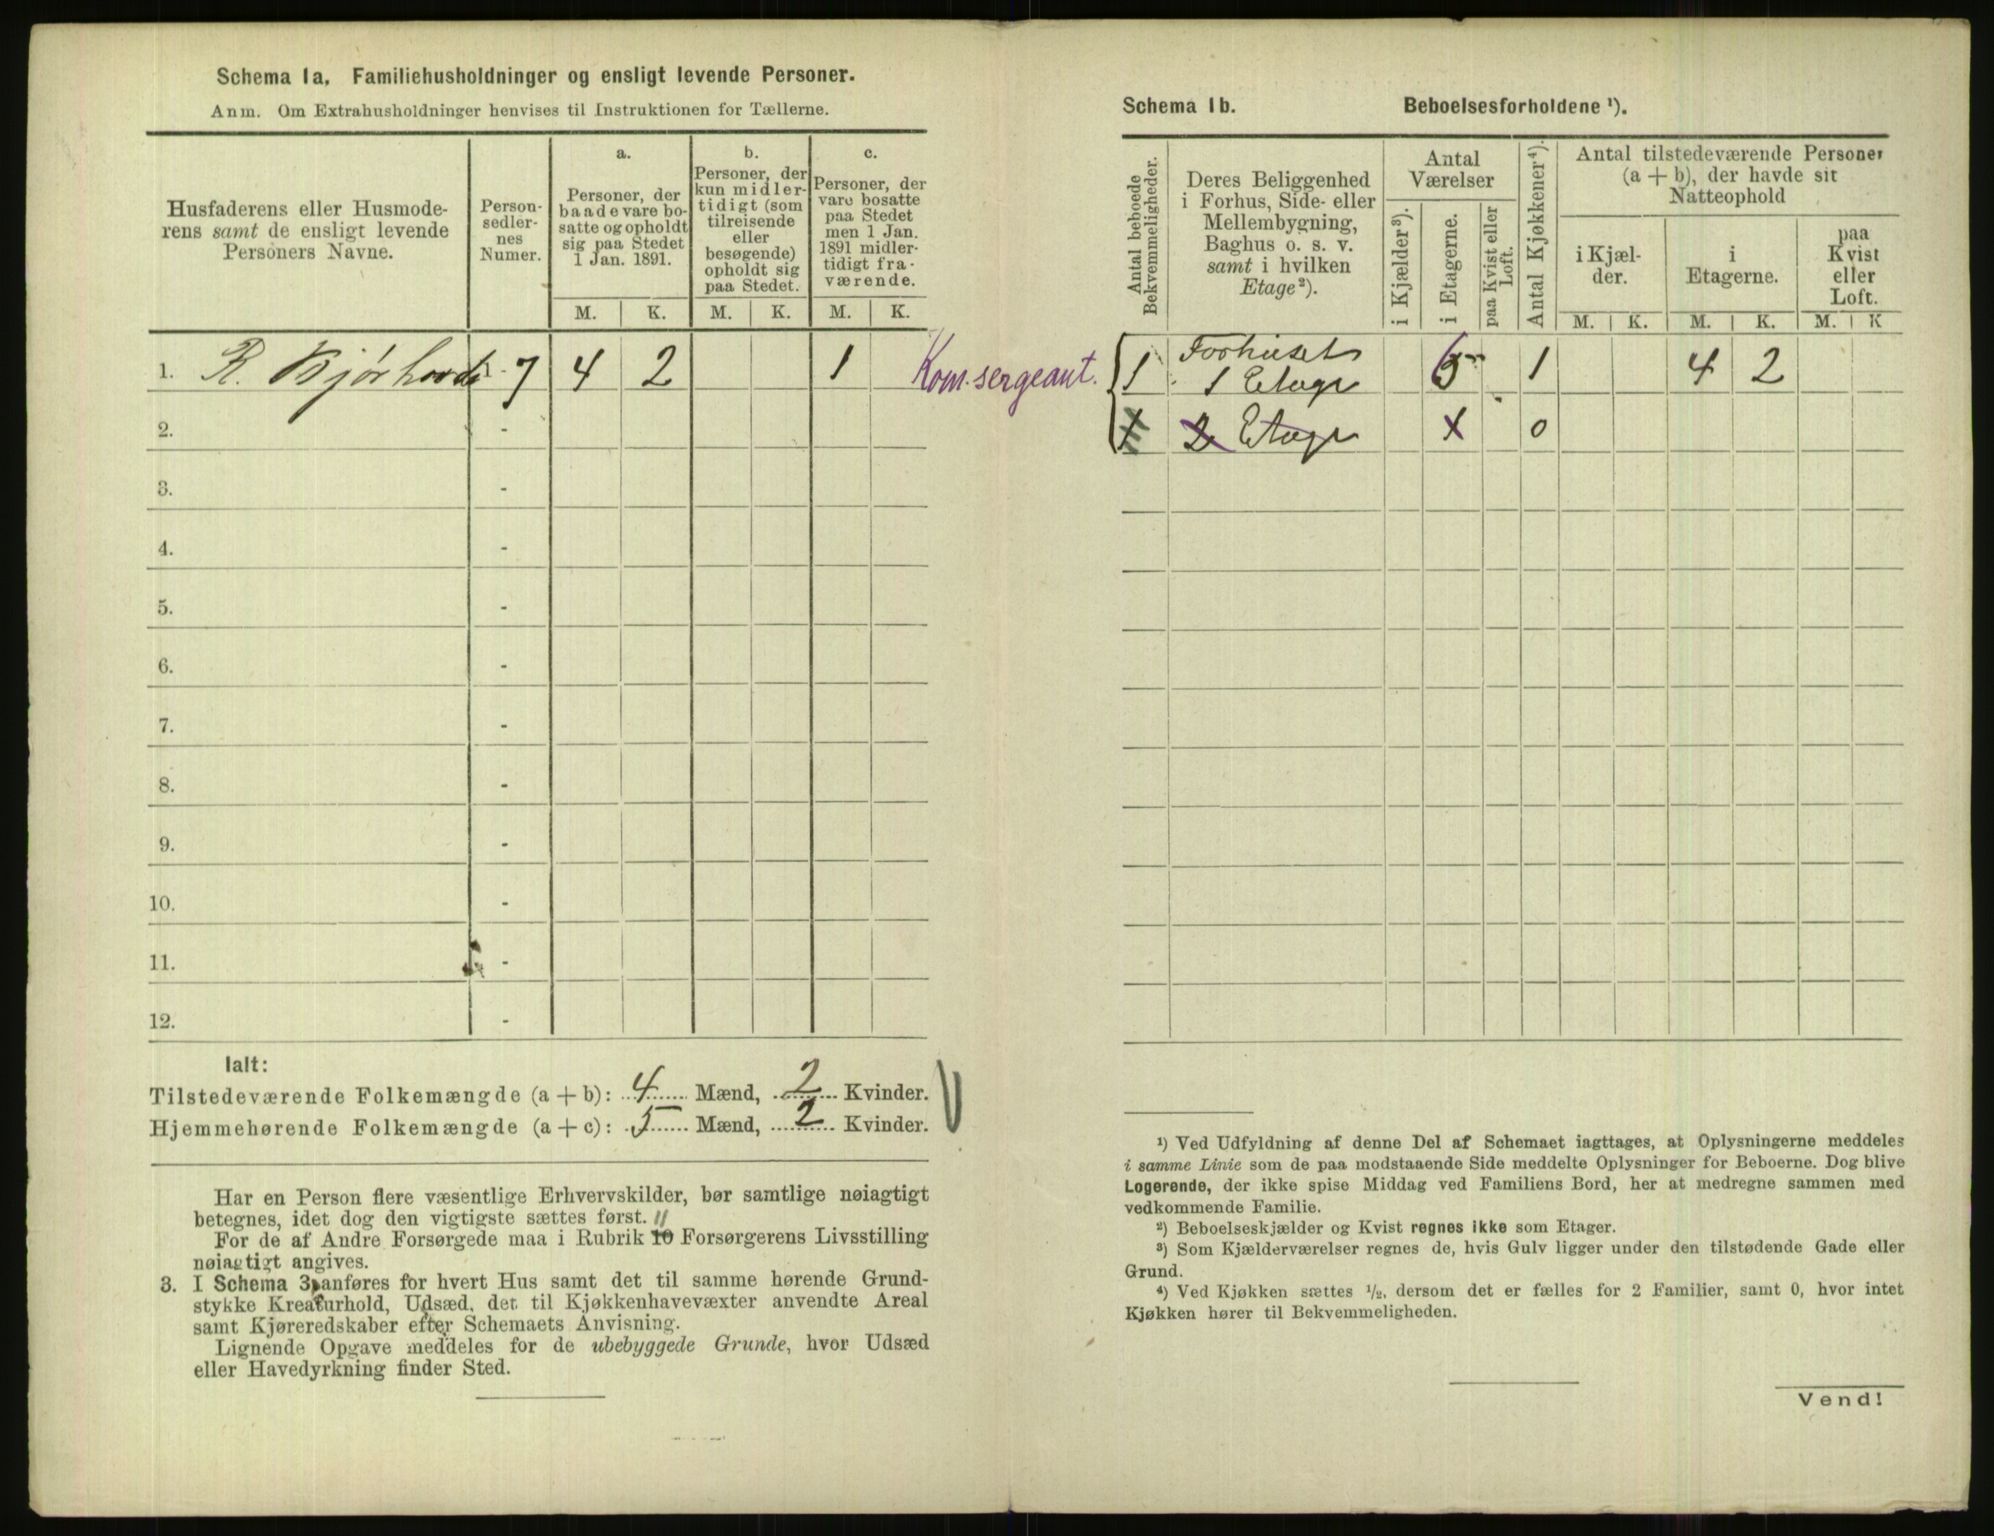 Schema 1a. Familiehusholdninger og ensligt levende Personer.
Anm. Om Extrahusholdninger henvises til Instruktionen for Tællerne.
Husfaderens eller Husmode-
rens samt de ensligt levende
Personers Navne.
Person-
sedler-
nes
Numer.
a.
Personer, der
baade vare bo-
satte og opholdt
sig paa Stedet
1 Jan. 1891.
b.
Personer, der
kun midler-
tidigt (som
tilreisende
eller
besøgende)
opholdt sig
paa Stedet.
c.
Personer, der
vare bosatte
paa Stedet
men 1 Jan.
1891 midler-
tidigt fra-
værende.
M. K. M. K. M. K.
1. R. Bjørhovde - 7 4 2 1 Kom.sergeant.
2. -
3. -
4. -
5. -
6. -
7. -
8. -
9. -
10. -
11. -
12. -
Ialt:
Tilstedeværende Folkemængde (a + b): 4 Mænd, 2 Kvinder.
Hjemmehørende Folkemængde (a + c): 5 Mænd, 2 Kvinder.
Har en Person flere væsentlige Erhvervskilder, bør samtlige nøiagtigt
betegnes, idet dog den vigtigste sættes først. 11
For de af Andre Forsørgede maa i Rubrik 10 Forsørgerens Livsstilling
nøiagtigt angives.
3. I Schema 3 anføres for hvert Hus samt det til samme hørende Grund-
stykke Kreaturhold, Udsæd, det til Kjøkkenhavevæxter anvendte Areal
samt Kjøreredskaber efter Schemaets Anvisning.
Lignende Opgave meddeles for de ubebyggede Grunde, hvor Udsæd
eller Havedyrkning finder Sted.
Schema 1b. Beboelsesforholdene ¹).
Antal beboede
Bekvemmeligheder.
Deres Beliggenhed
i Forhus, Side- eller
Mellembygning,
Baghus o. s. v.
samt i hvilken
Etage²).
Antal
Værelser
i Kjælder³).
i Etagerne.
paa Kvist eller
Loft.
Antal Kjøkkener⁴).
Antal tilstedeværende Personer
(a + b), der havde sit
Natteophold
i Kjæl-
der.
i
Etagerne.
paa
Kvist
eller
Loft.
M. K. M. K. M. K
Forhuset
1 1 Etage 1 4 2
2 Etage x 0
¹) Ved Udfyldning af denne Del af Schemaet iagttages, at Oplysningerne meddeles
i samme Linie som de paa modstaaende Side meddelte Oplysninger for Beboerne. Dog blive
Logerende, der ikke spise Middag ved Familiens Bord, her at medregne sammen med
vedkommende Familie.
²) Beboelseskjælder og Kvist regnes ikke som Etager.
³) Som Kjælderværelser regnes de, hvis Gulv ligger under den tilstødende Gade eller
Grund.
⁴) Ved Kjøkken sættes ½, dersom det er fælles for 2 Familier, samt 0, hvor intet
Kjøkken hører til Bekvemmeligheden.
Vend!